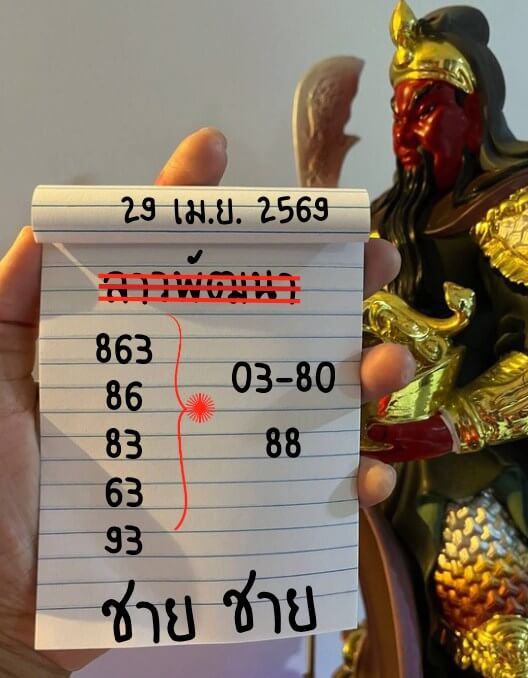 29 เม.ย. 2569
ลาวพัฒนา
863
86
83
63
93
03-80
88
ชาย ชาย